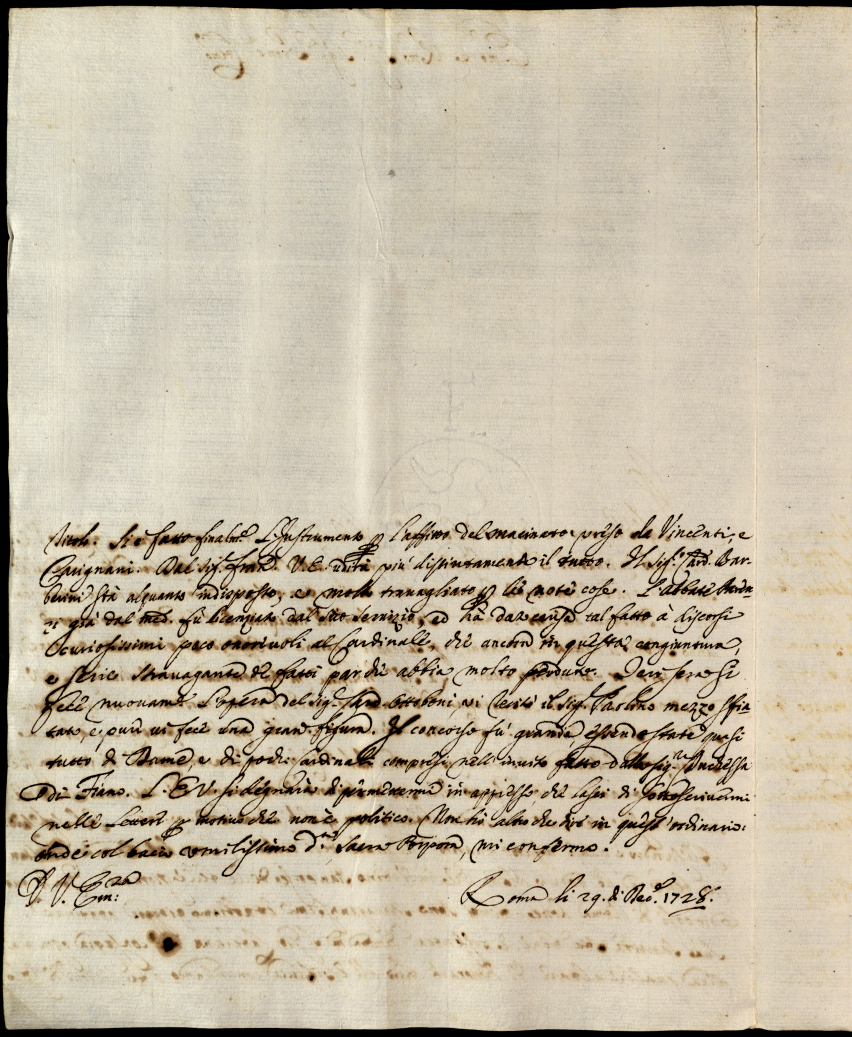 titolo. Si è fatto finalm.te L'Instrumento p l'affitto del macinato preso da Vincenti, e
Cavignani. Dal Sig.r Fran.co V. E. udirà più distintamente il tutto. Il Sig.r Card. Bar-
berini stà alquanto indisposto, e molto travagliato p le note cose. L'abbate
già dal med.o fù licenziato dal suo servizio, ed hà dato causa tal fatto à discorsi
curiosissimi poco onorevoli al Cardinale, che ancora in questa congiuntura,
e serie stravagante de fatti par che abbia molto perduto. Ieri sera si
fece nuovam.te L'opera del Sig.r Card. Ottoboni, vi recitò il Sig.r Paolino mezzo sfia-
tato, e pure vi fece una gran figura. Il concorso fù grande, essendo state quasi
tutte le Dame, e di pochi Cardinali compresi nell'invito fatto dalla Sig.ra Duchessa
di Fiano. L. E V. si degnarà di permettermi in appresso, che lasci di sottoscrivermi
nelle Lettere p motivo che non è politico. Non hò altro che dire in quest'ordinario:
onde col bacio umilissimo d.la Sacra Porpora, mi confermo.
D. V. Em:za
Roma li 29. di Dec.e 1728.